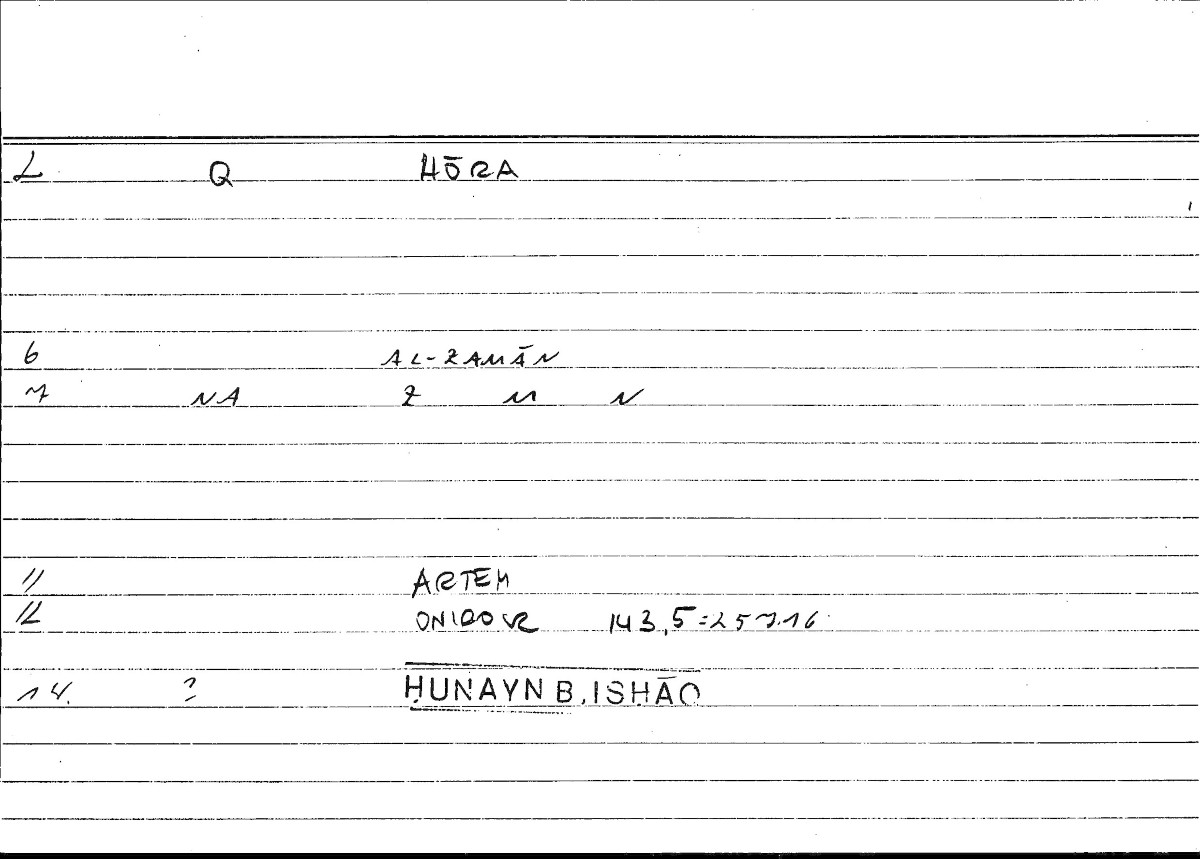 L Q HŌRA
6 AL-ZAMĀN
7 NA Z M N
11 ARTEM
12 ONIDOVR 143,5=257.16
14. ? ḤUNAYN B. ISḤĀQ